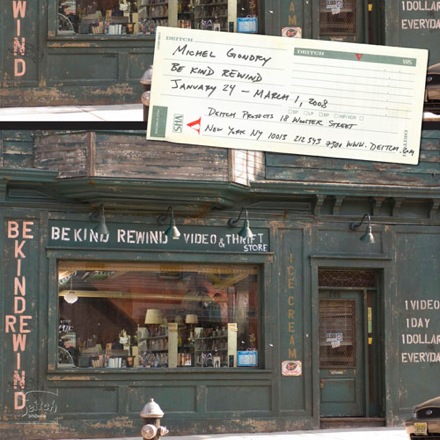 REWIND
ICE
CREAM
1 DOLLAR
EVERYDAY
DEITCH
VHS
MICHEL GONDRY
BE KIND REWIND
JANUARY 24 – MARCH 1, 2008
DEITCH PROJECTS 18 WOOSTER STREET
NEW YORK NY 10013 212 343 7300 WWW.DEITCH.COM
VHS
BE KIND REWIND
BE KIND REWIND – VIDEO & THRIFT
STORE
ICE CREAM
1 VIDEO
1 DAY
1 DOLLAR
EVERYDAY
deitch